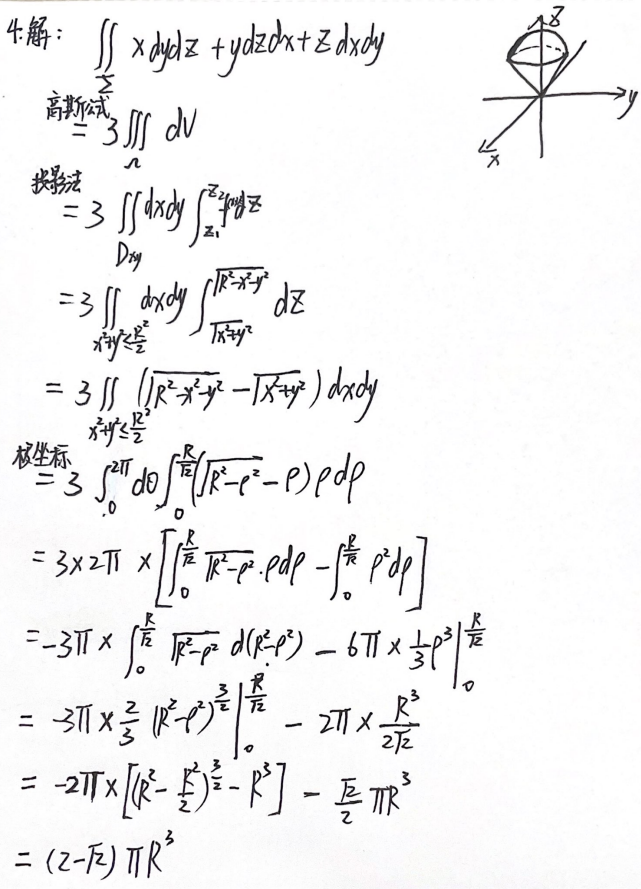 4.解: ∬_Σ x dydz + y dzdx + z dxdy
高斯公式 = 3∭_Ω dV
投影法 = 3∬_{Dxy} dxdy ∫_{z₁}^{z₂} dz
= 3∬_{x²+y²≤R²/2} dxdy ∫_{√(x²+y²)}^{√(R²-x²-y²)} dz
= 3∬_{x²+y²≤R²/2} (√(R²-x²-y²) - √(x²+y²)) dxdy
极坐标 = 3∫_0^{2π} dθ ∫_0^{R/√2} (√(R²-ρ²) - ρ) ρ dρ
= 3×2π × [∫_0^{R/√2} √(R²-ρ²)·ρdρ - ∫_0^{R/√2} ρ² dρ]
= -3π × ∫_0^{R/√2} √(R²-ρ²) d(R²-ρ²) - 6π × 1/3 ρ³ |_0^{R/√2}
= -3π × 2/3 (R²-ρ²)^{3/2} |_0^{R/√2} - 2π × R³/(2√2)
= -2π × [(R² - R²/2)^{3/2} - R³] - √2/2 πR³
= (2-√2) πR³
z
y
x